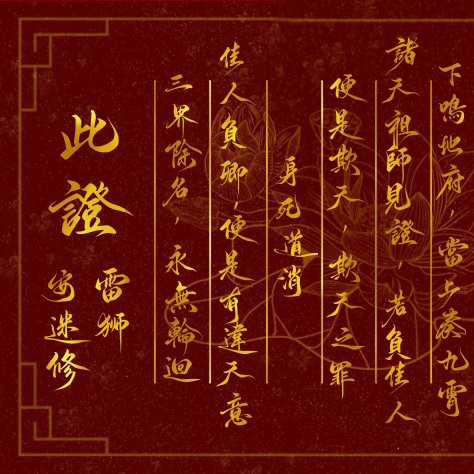 下鳴地府,當上奏九霄
諸天祖師見證,若負佳人
便是欺天,欺天之罪
身死道消
佳人負卿,便是有違天意
三界除名,永無輪迴
此證
雷狮
安迷修